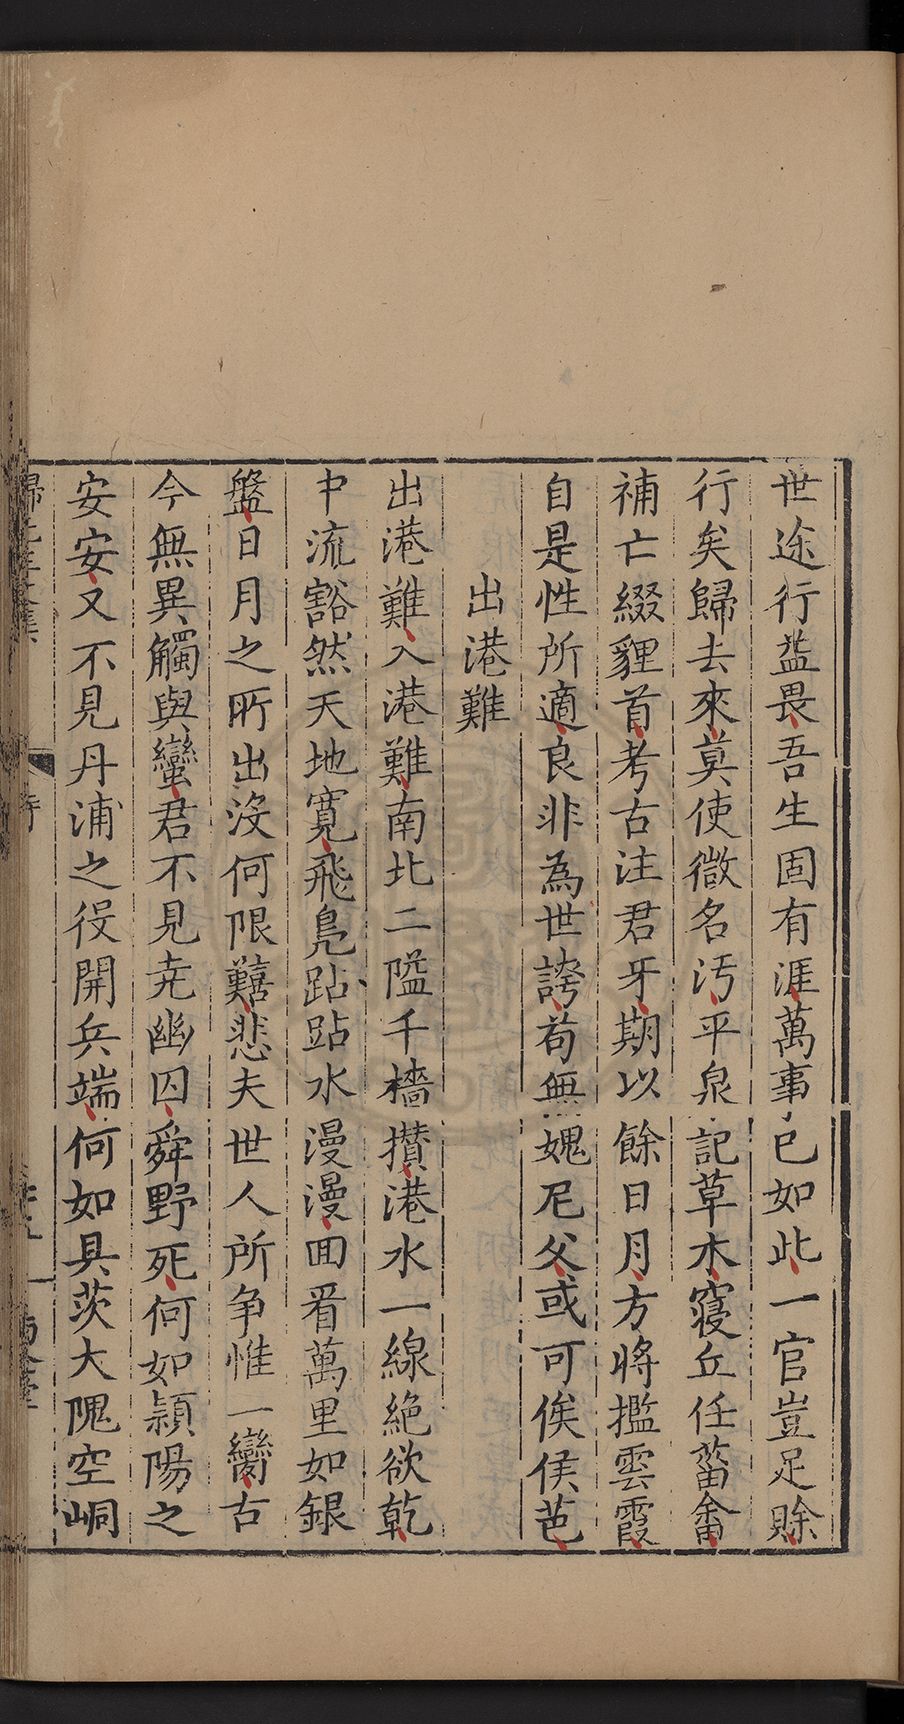 世途行益畏吾生固有涯萬事已如此一官豈足賒
行矣歸去來莫使徵名汚平泉記草木寖丘任菑畬
補亡綴貍首考古注君牙期以餘日月方將攬雲霞
自是性所適良非為世誇苟無媿尼父或可俟侯芭
出港難
出港難入港難南北二隘千檣攢港水一線絶欲乾
中流豁然天地寛飛鳧跕跕水漫漫囬看萬里如銀
盤日月之所出没何限囏悲夫世人所争惟一臠古
今無異觸與蠻君不見尭幽囚舜野死何如頴陽之
安安又不見丹浦之役開兵端何如具茨大隗空峒